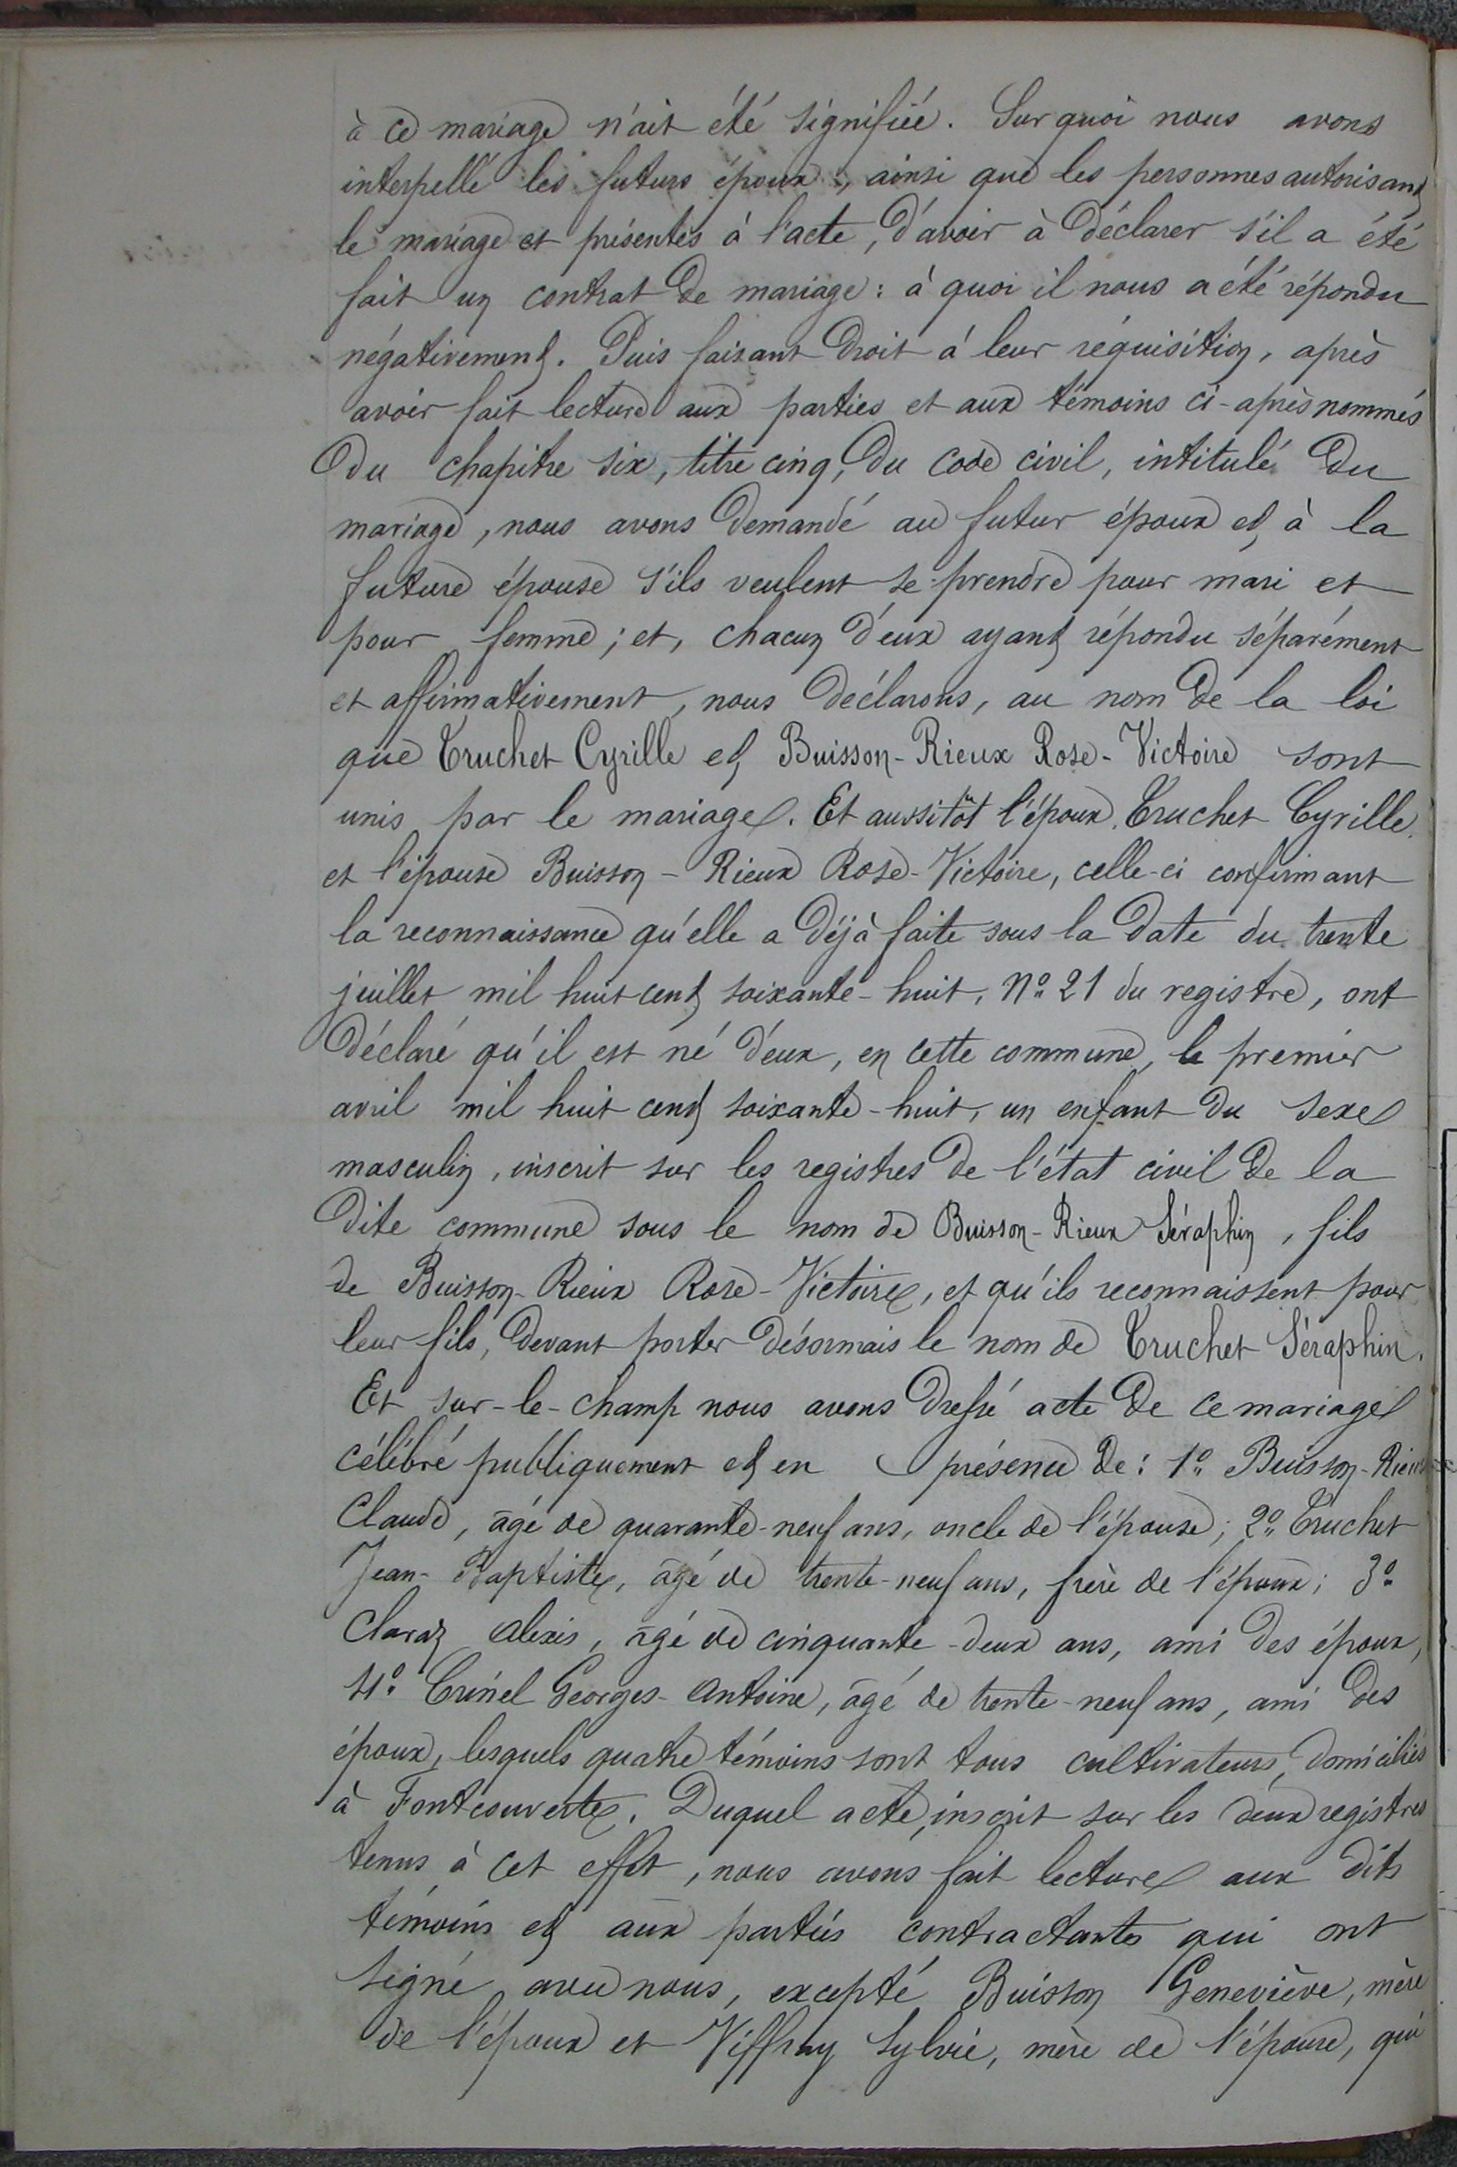 à ce mariage n'ait été signifiée. Sur quoi nous avons
interpellé les futurs époux, ainsi que les personnes autorisant
le mariage et présentes à l'acte, d'avoir à déclarer s'il a été
fait un contrat de mariage : à quoi il nous a été répondu
négativement. Puis faisant droit à leur réquisition, après
avoir fait lecture aux parties et aux témoins ci-après nommés
du chapitre six, titre cinq, du code civil, intitulé du
mariage, nous avons demandé au futur époux et à la
future épouse s'ils veulent se prendre pour mari et
pour femme ; et, chacun d'eux ayant répondu séparément
et affirmativement, nous déclarons, au nom de la loi
que Truchet Cyrille et Buisson-Rieux Rose-Victoire sont
unis par le mariage. Et aussitôt l'époux Truchet Cyrille
et l'épouse Buisson-Rieux Rose-Victoire, celle-ci confirmant
la reconnaissance qu'elle a déjà faite sous la date du trente
juillet mil huit cent soixante-huit, No 21 du registre, ont
déclaré qu'il est né d'eux, en cette commune, le premier
avril mil huit cent soixante-huit, un enfant du sexe
masculin, inscrit sur les registres de l'état civil de la
dite commune sous le nom de Buisson-Rieux Séraphin, fils
de Buisson-Rieux Rose-Victoire, et qu'ils reconnaissent pour
leur fils, devant porter désormais le nom de Truchet Séraphin.
Et sur-le-champ nous avons dressé acte de ce mariage
célébré publiquement et en présence de : 1o Buisson-Rieux
Claude, âgé de quarante-neuf ans, oncle de l'épouse ; 2o Truchet
Jean-Baptiste, âgé de trente-neuf ans, frère de l'époux ; 3o
Claraz Alexis, âgé de cinquante-deux ans, ami des époux,
4o Crinel Georges-Antoine, âgé de trente-neuf ans, ami des
époux, lesquels quatre témoins sont tous cultivateurs, domiciliés
à Fontcouverte. Duquel acte, inscrit sur les deux registres
tenus à cet effet, nous avons fait lecture aux dits
témoins et aux parties contractantes qui ont
signé avec nous, excepté Buisson Geneviève, mère
de l'époux et Viffray Sylvie, mère de l'épouse, qui